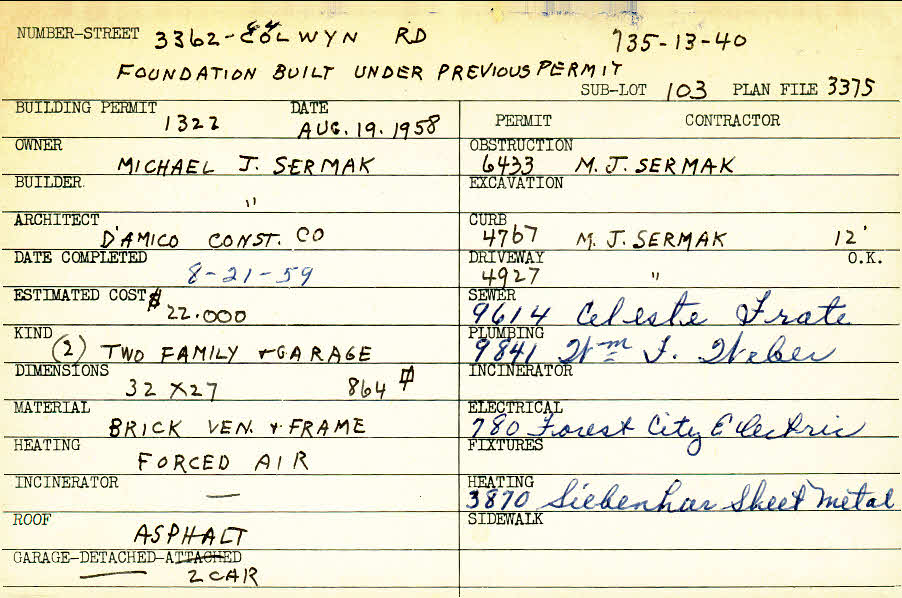 NUMBER-STREET 3362-64 COLWYN RD 735-13-40
FOUNDATION BUILT UNDER PREVIOUS PERMIT
SUB-LOT 103 PLAN FILE 3375
BUILDING PERMIT DATE
1322 AUG. 19. 1958
OWNER
MICHAEL J. SERMAK
BUILDER
"
ARCHITECT
D'AMICO CONST. CO
DATE COMPLETED
8-21-59
ESTIMATED COST $
22.000
KIND
(2) TWO FAMILY + GARAGE
DIMENSIONS
32 X 27 864 ⌗
MATERIAL
BRICK VEN. + FRAME
HEATING
FORCED AIR
INCINERATOR
—
ROOF
ASPHALT
GARAGE-DETACHED-ATTACHED
2 CAR
PERMIT CONTRACTOR
OBSTRUCTION
6433 M. J. SERMAK
EXCAVATION
CURB
4767 M. J. SERMAK 12'
DRIVEWAY O.K.
4927 "
SEWER
9614 Celeste Frate
PLUMBING
9841 Wm F. Weber
INCINERATOR
ELECTRICAL
780 Forest City Electric
FIXTURES
HEATING
3870 Siebenhar Sheet Metal
SIDEWALK